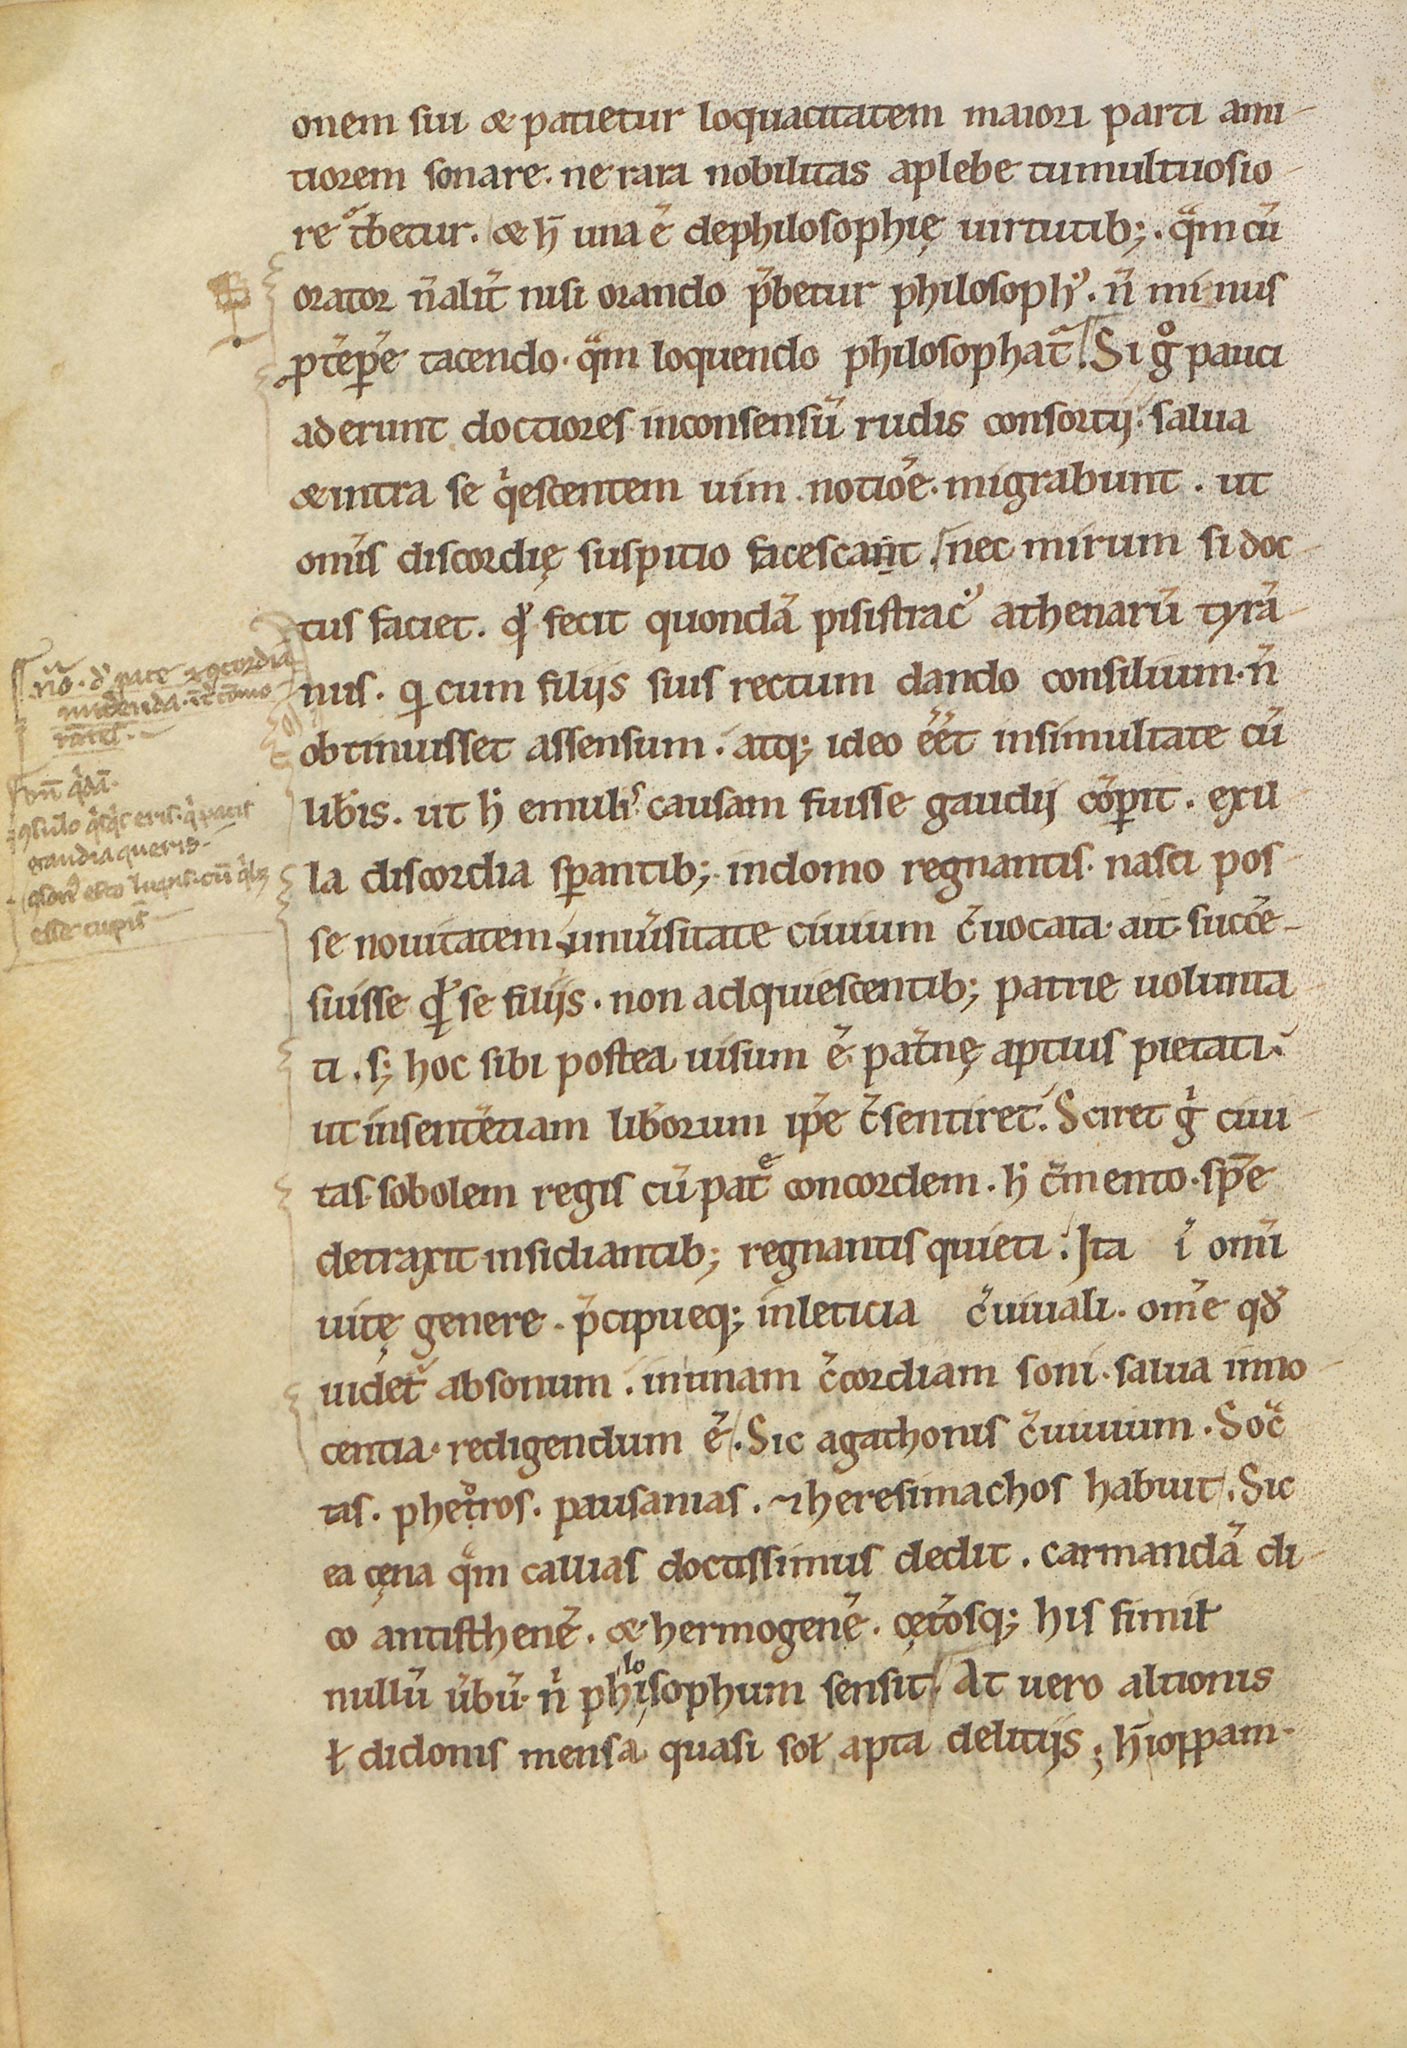 onem sui & patietur loquacitatem maiori parti ami-
tiorem sonare. ne rara nobilitas aplebe tumultuosio-
re t͛betur. & h̄ una ē dephilosophię uirtutib;. qͣm cū
orator n̄alit̄ nisi orando p̄betur philosophꝰ. n̄ minus
ꝓtēꝑe tacendo. qͣm loquendo philosophat᷑. Si gͦ pauci
aderunt doctiores inconsensū rudis consortij. salua
& intra se qͥescentem uim notiōe. migrabunt. ut
om̄is discordię suspitio facescant. nec mirum si doc-
tus faciet. qͩ fecit quondā pisistracꝰ athenarū tyrā-
nus. qͥ cum filijs suis rectum dando consilium. n̄
obtinuisset assensum. atq; ideo eēt insimultate cū
lib̄is. ut h̄ emulis causam fuisse gaudij cōꝑit. exil
la discordia sꝑantib; indomo regnantis. nasci pos-
se nouitatem uniu̅sitate ciuium c̄uocata. ait succē-
suisse qͥdē se filijs. non adquiescentib; patrie uolunta
ti. s; hoc sibi postea uisum ē. pat̄nę aptius pietati.
ut insentētiam lib̄orum ip̄e c̄sentiret. Sciret gͥ ciui-
tas sobolem regis cū patͤ concordem. h̄ c̄mento. spē
detraxit insidiantib; regnantis quieti. Ita ī om̄i
uitę genere. p̄cipueq; inleticia c̄uiuali. om̄e qđ
uidet᷑ absonum. inunam c̄cordiam soni. salua inno-
centia. redigendum ē. Sic agathonis c̄uiuium. Soc̄
tas. phetͩros. pausanias. ⁊ heresimachos habuit. Sic
ea cęna qͣm callias doctissimus dedit. carmandā di-
co antisthenē. & hermogenē. cęt̄osq; his simił
nullū ūbū. n̄ philosophum sensit. At uero altionis
ł didonis mensa quasi soł apta delitijs;
nō. dͤ pace ⁊ ꝯcordia
esse cupis
gaudia queris